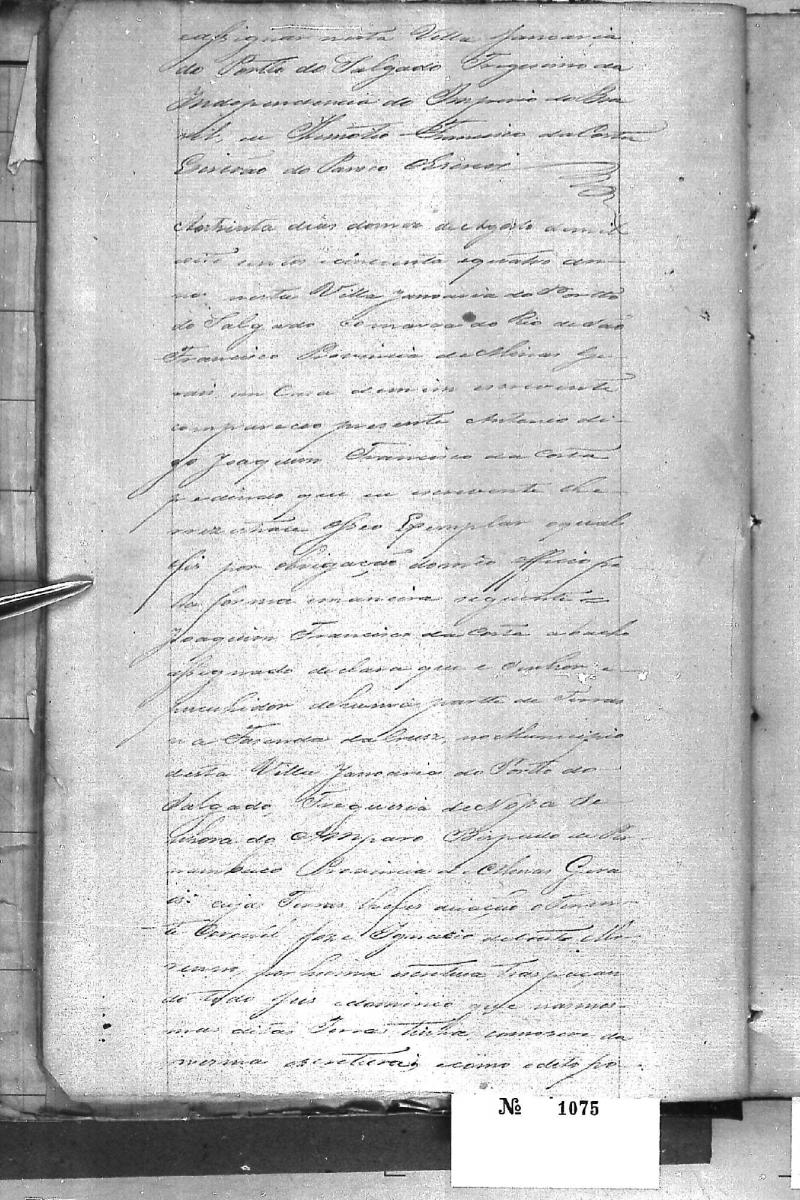 assignar nesta Villa Januaria
do Portto do Salgado Triguesimo da
Independencia do Imperio do Bra
sil, eu Francisco da Costa
Escrivão do
Aos trinta dias do mez de Agosto de mil
oito centos e cincoenta e quatro an-
no nesta Villa Januaria do Portto
do Salgado Comarca do Rio de São
Francisco Provincia de Minas Ge-
rais em Casa de mim escrevente
compareceo presente Antonio di-
go Joaquim Francisco da Costa
pedindo que eu escrevente lhe
Exemplar o qual
fis por obrigação do meo officio pe
la forma e maneira seguinte =
Joaquim Francisco da Costa abacho
assignado declara que é Senhor e
de huma partte de Terras
na Fazenda da Crus, no Municipio
desta Villa Januaria do Portto do
Salgado, Freguezia de Nossa Se
nhora do Amparo Bispado de Per
nambuco Provincia de Minas Gera
is: cujas Terras lhe fes duação o Tenen-
te Coronél José Ignacio do Couto Mo-
reno, por huma escritura
do todo jus e dominio que nas mes-
mas ditas Terras tinha, como se ve da
mesma escritura, e como o dito po-
Nº 1075